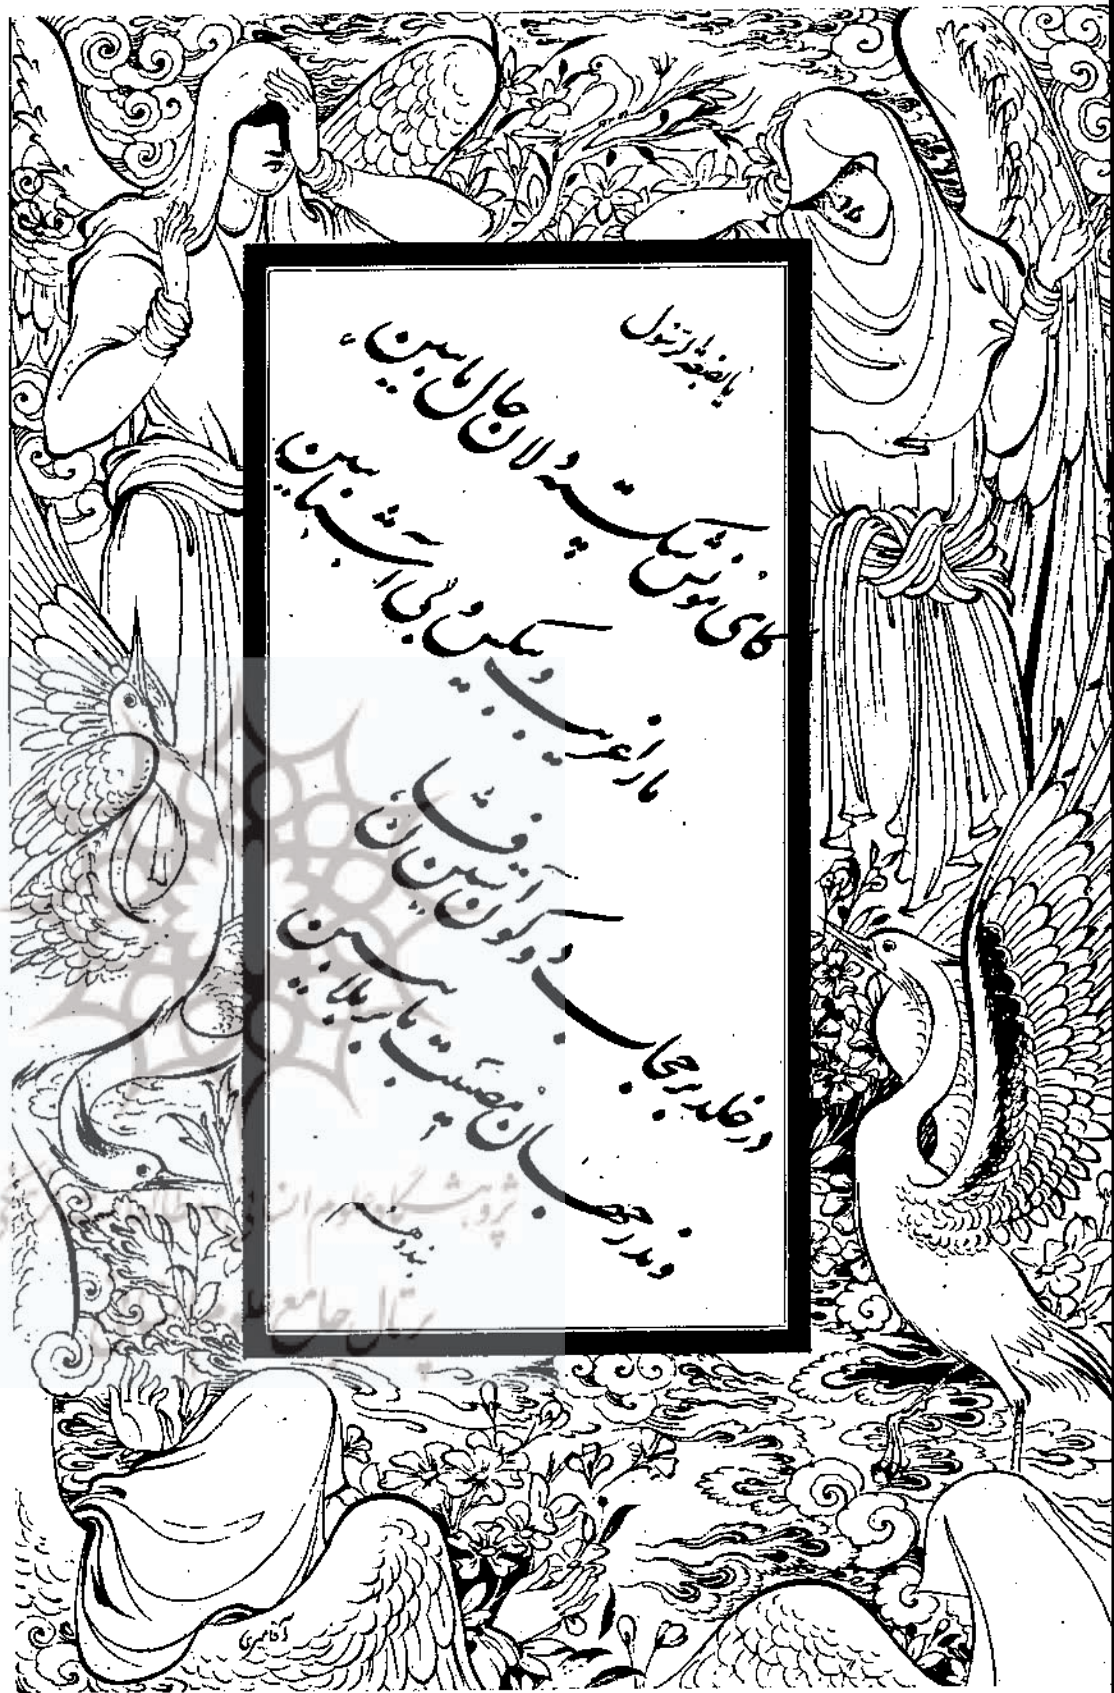 یا بضعة الرسول
کای مونس شکسته دلان حال ما ببین
ما را غریب و بیکس و بی آشنا ببین
در خلد بر حجاب دو کون آستین فشان
وندر جهان مصیبت ما بر ملا ببین
آقامیری
پژوهشگاه علوم انسانی و مطالعات
پرتال جامع علوم